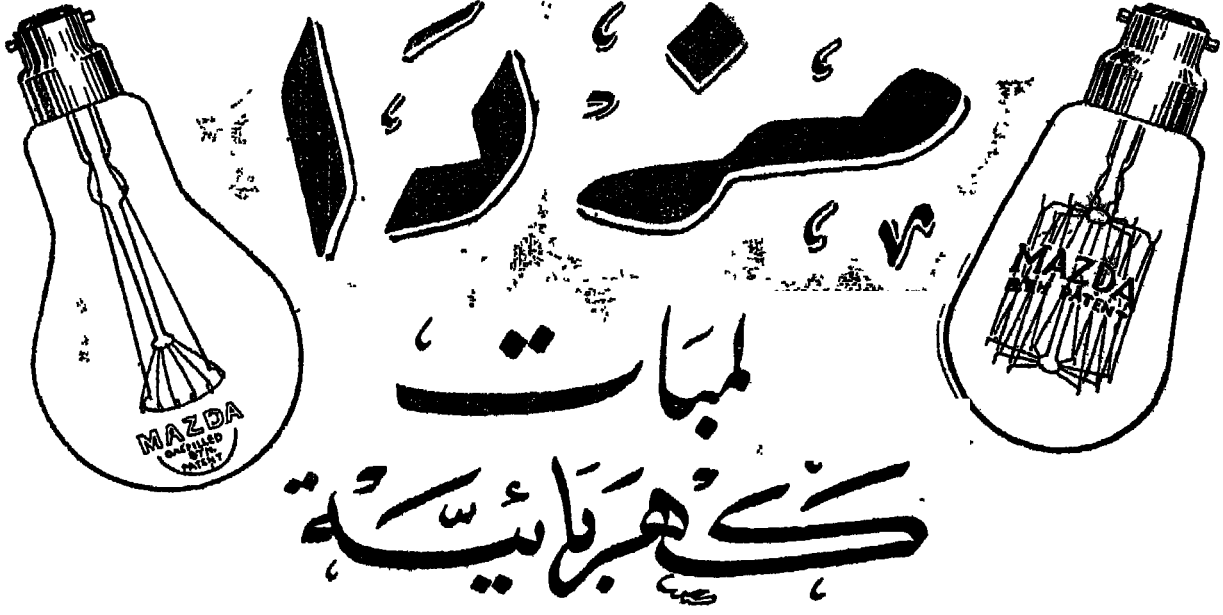 مزدا
لمبات
كهربائيّة
MAZDA
GASFILLED
BTH
PATENT
MAZDA
BTH PATENT